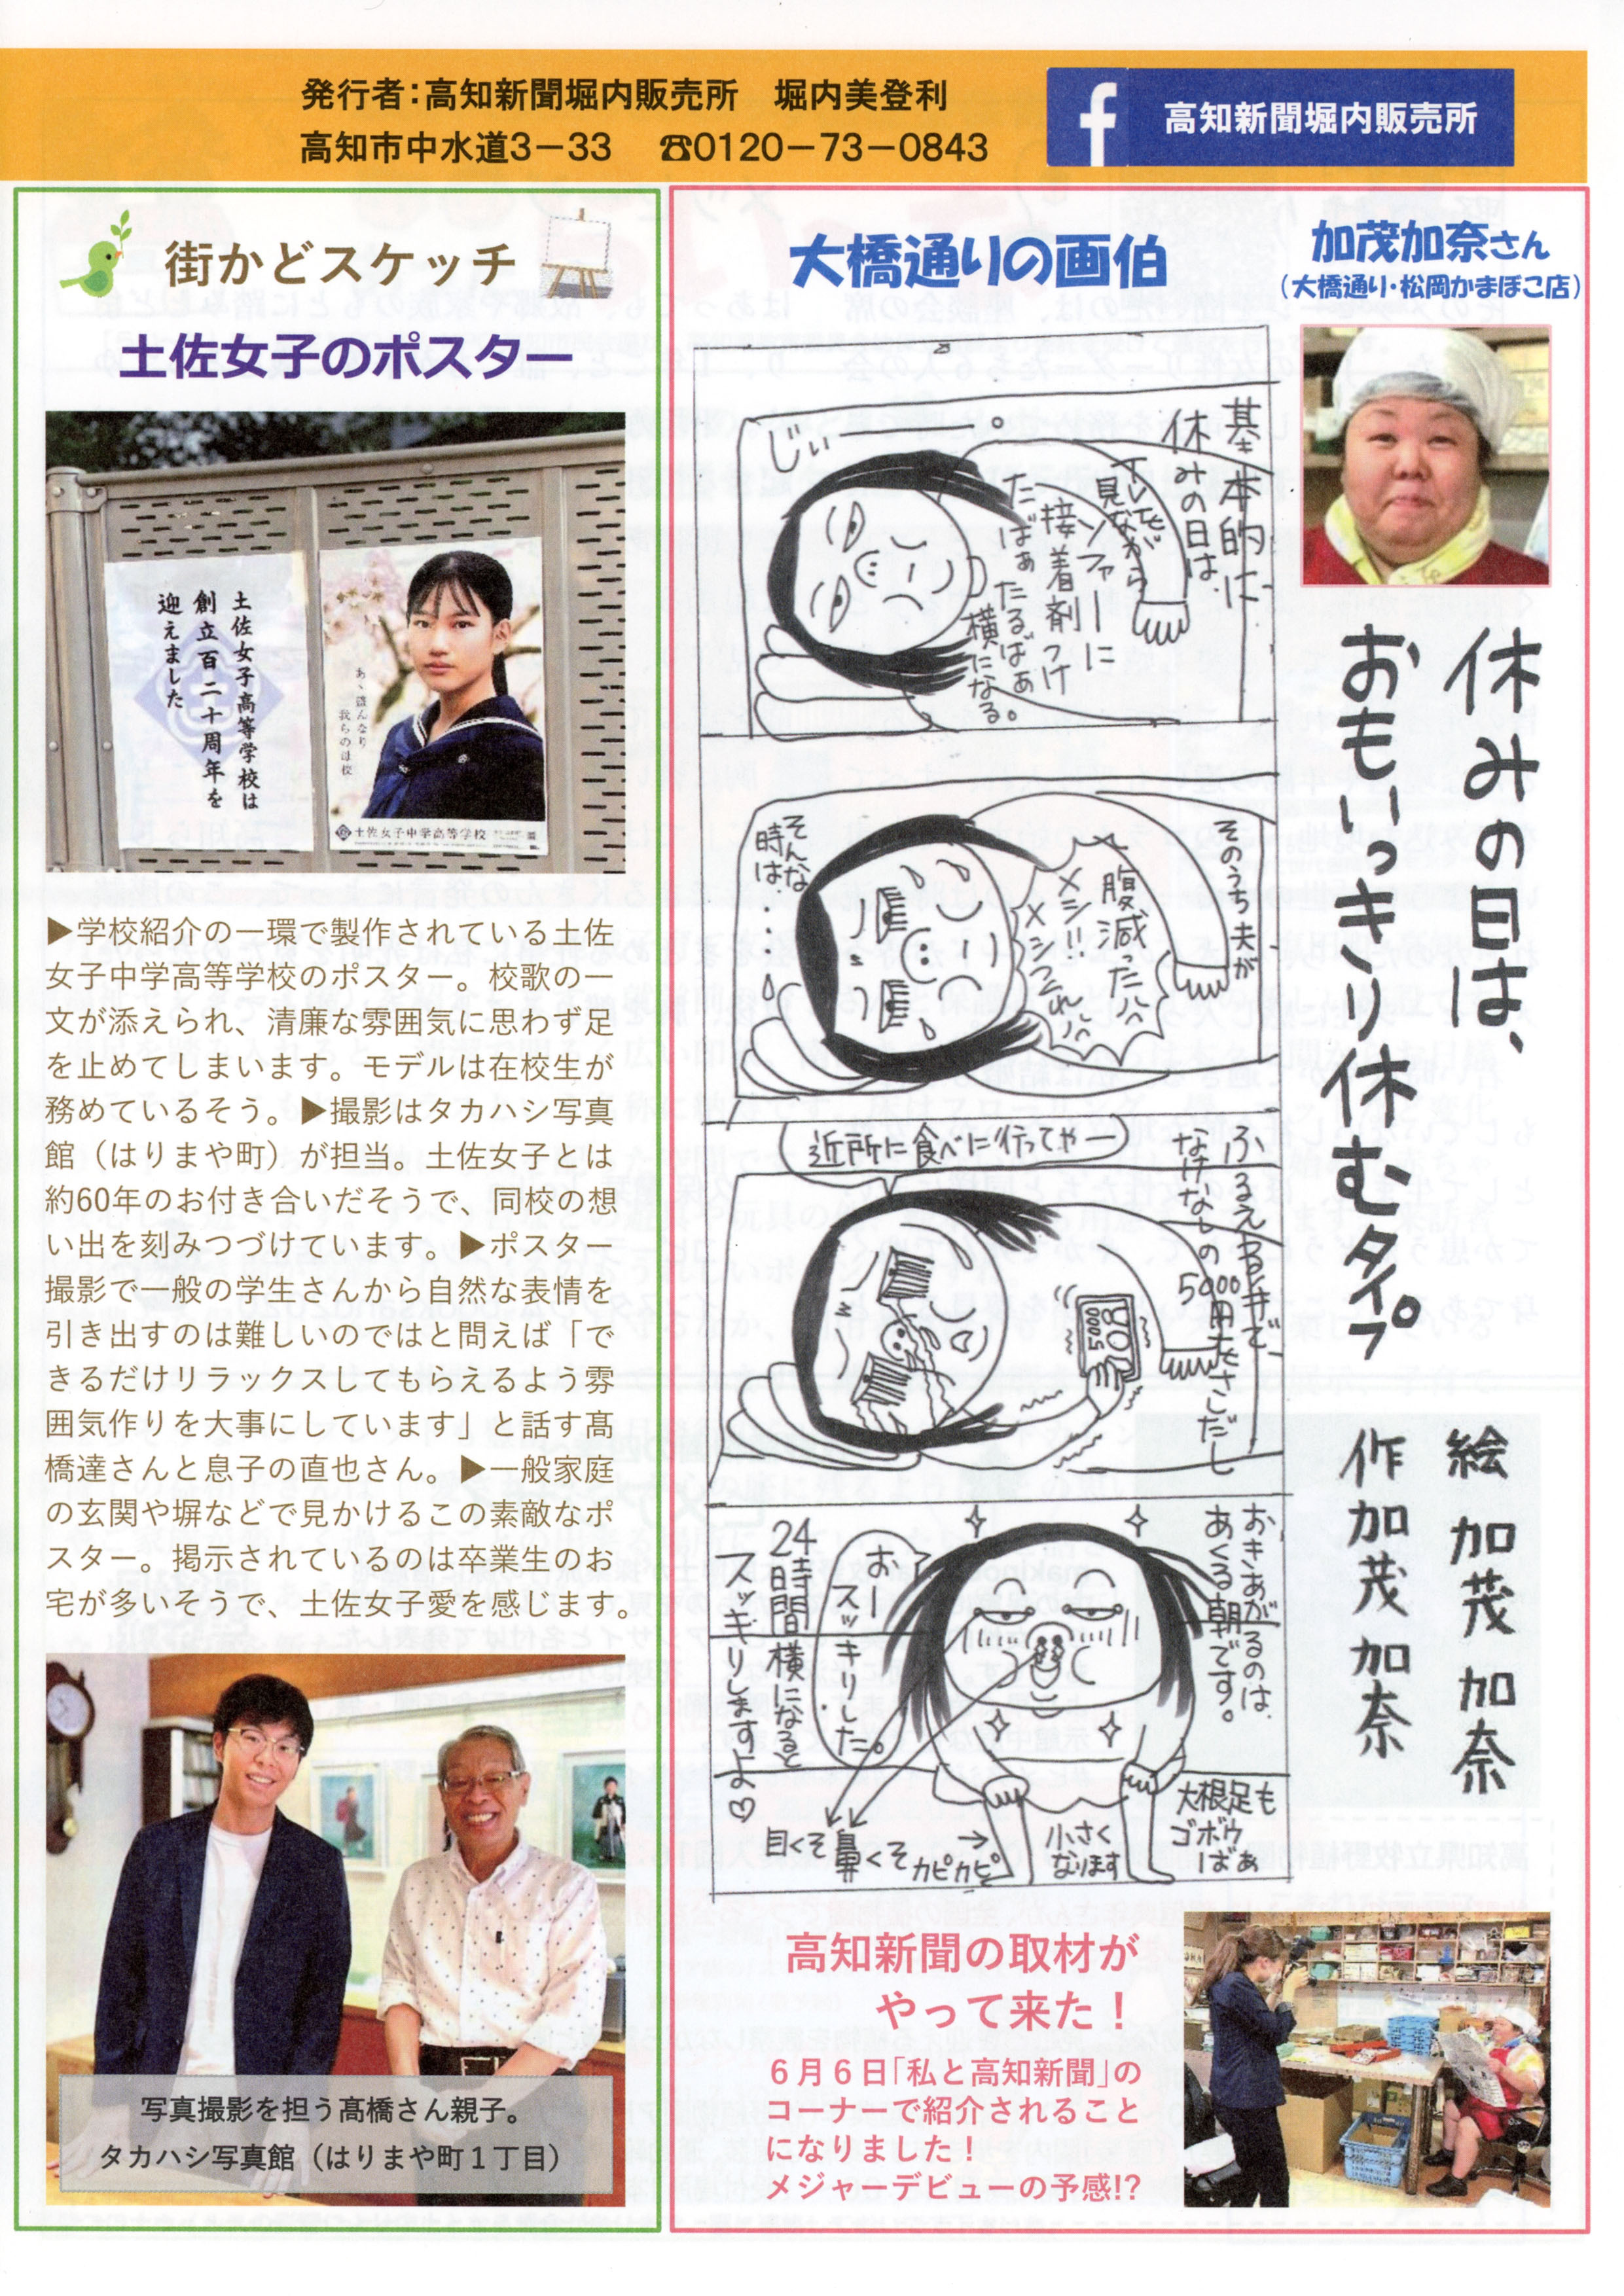 発行者：高知新聞堀内販売所　堀内美登利
高知市中水道3－33　☎0120－73－0843
f
高知新聞堀内販売所
街かどスケッチ
土佐女子のポスター
土佐女子高等学校は
創立百二十周年を
迎えました
あゝ盛んなり
我らの母校
土佐女子中学高等学校
▶学校紹介の一環で製作されている土佐
女子中学高等学校のポスター。校歌の一
文が添えられ、清廉な雰囲気に思わず足
を止めてしまいます。モデルは在校生が
務めているそう。▶撮影はタカハシ写真
館（はりまや町）が担当。土佐女子とは
約60年のお付き合いだそうで、同校の想
い出を刻みつづけています。▶ポスター
撮影で一般の学生さんから自然な表情を
引き出すのは難しいのではと問えば「で
きるだけリラックスしてもらえるよう雰
囲気作りを大事にしています」と話す髙
橋達さんと息子の直也さん。▶一般家庭
の玄関や塀などで見かけるこの素敵なポ
スター。掲示されているのは卒業生のお
宅が多いそうで、土佐女子愛を感じます。
写真撮影を担う髙橋さん親子。
タカハシ写真館（はりまや町１丁目）
大橋通りの画伯
加茂加奈さん
（大橋通り・松岡かまぼこ店）
休みの日は、
おもいっきり休むタイプ。
絵　加茂　加奈
作　加茂　加奈
基本的に
休みの日は、
テレビ
見ながら
ソファーに
接着剤つけ
たばぁ
たるばぁ
横になる。
じぃー。
そのうち夫が
腹減った!!
メシ!!
メシつくれ!!
そんな
時は・・・
ふるえる手で、
なけなしの
5000円札さしだし
近所に食べに行ってやー
5000
おきあがるのは、
あくる朝です。
おー
スッキリした。
24時間横になると
スッキリしますよ♡
目くそ
鼻くそ
カピカピ
大根足も
ゴボウ
ばぁ
小さく
なります
高知新聞の取材が
やって来た！
６月６日「私と高知新聞」の
コーナーで紹介されること
になりました！
メジャーデビューの予感!?